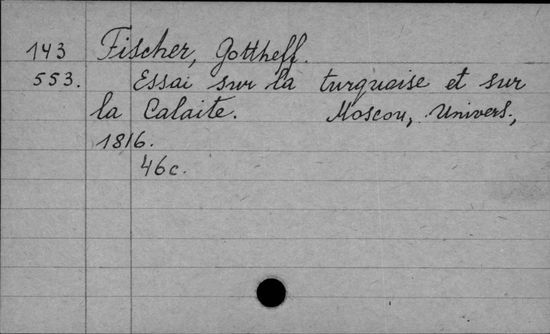 143 Fischer, Gottheff.
553. Essai sur la turquoise et sur
la Calaite. Moscou, Univers.,
1816.
46 c.